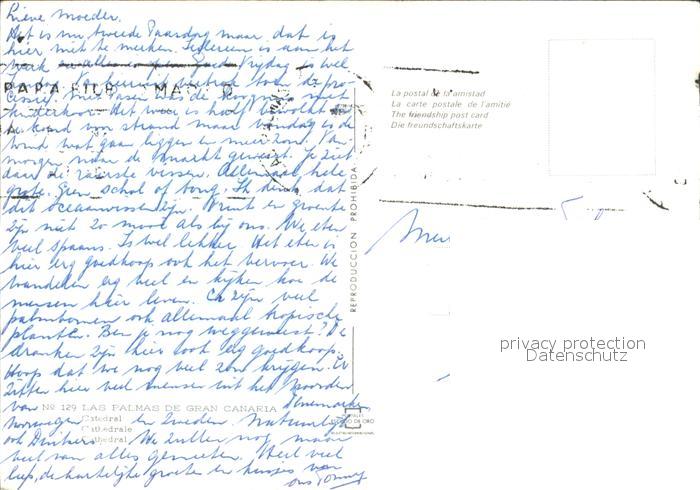 Lieve moeder.
Het is nu tweede Paasdag maar dat is
hier niet te merken. Iedereen is aan het
werk en alleen Goede Vrijdag is wel
PAPA FILP MAD
was de
Het weer is half bewolkt
strand maar vandaag is de
wat gaan liggen en meer zon. Van
morgen naar de markt geweest. Je ziet
daar de raarste vissen. Allemaal hele
grote. Geen schol of tong. Ik denk dat
dit oceaanvissen zijn. Fruit en groente
zijn niet zo mooi als bij ons. We eten
veel spaans. Is wel lekker. Het eten is
hier erg goedkoop ook het vervoer. We
wandelen erg veel en kijken hoe de
mensen hier leven. Er zijn veel
palmbomen ook allemaal tropische
planten. Ben je nog weggeweest? De
dranken zijn hier ook erg goedkoop.
Hoop dat we nog veel zon krijgen. Er
zitten hier veel mensen uit het Noorden
van Denemarken,
Nº 129 LAS PALMAS DE GRAN CANARIA
Noorwegen en Zweden. Natuurlijk
Catedral
Cathedrale
Cathedral
ook Duitsers. We zullen nog maar
veel van alles genieten. Heel veel
liefs, de hartelijke groeten en kusjes van
ons Tonny
REPRODUCCION PROHIBIDA
La postal de la amistad
La carte postale de l'amitié
The friendship post card
Die freundschaftskarte
Mev
privacy protection
Datenschutz